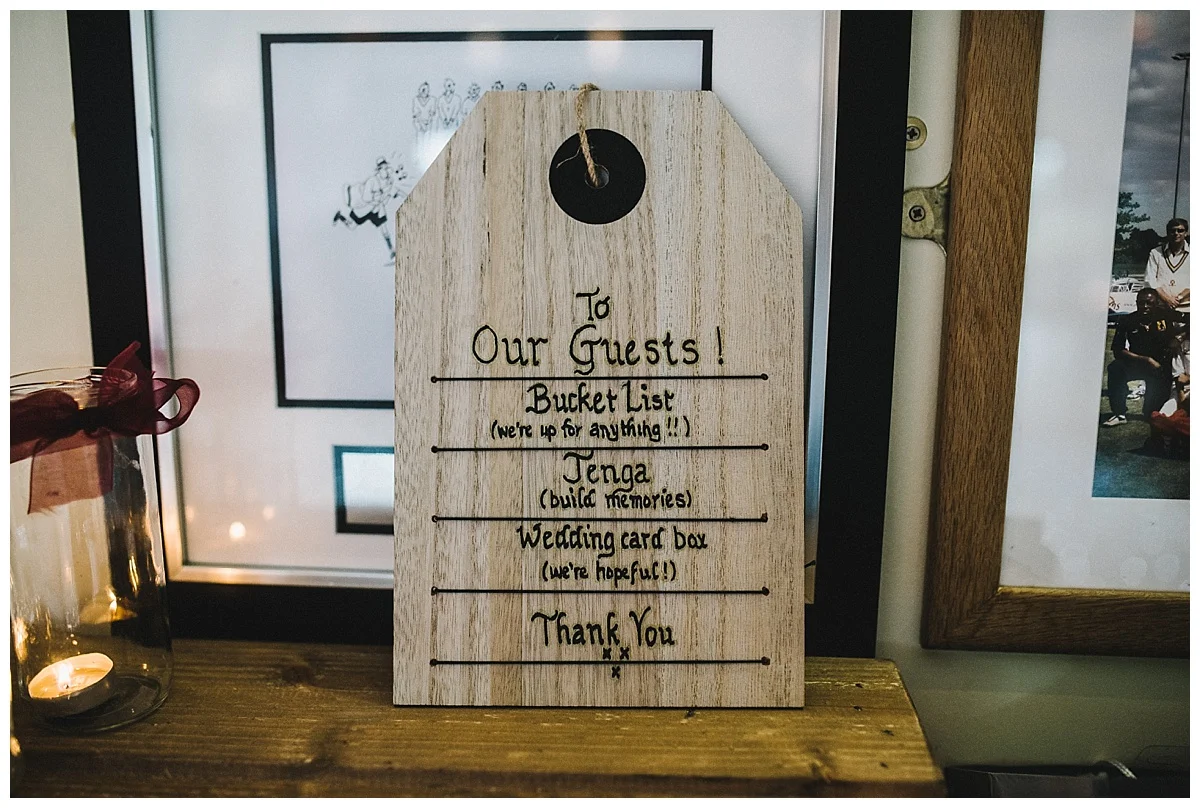 To
Our Guests!
Bucket List
(we're up for anything!!)
Jenga
(build memories)
Wedding card box
(we're hopeful!)
Thank You
x x
x